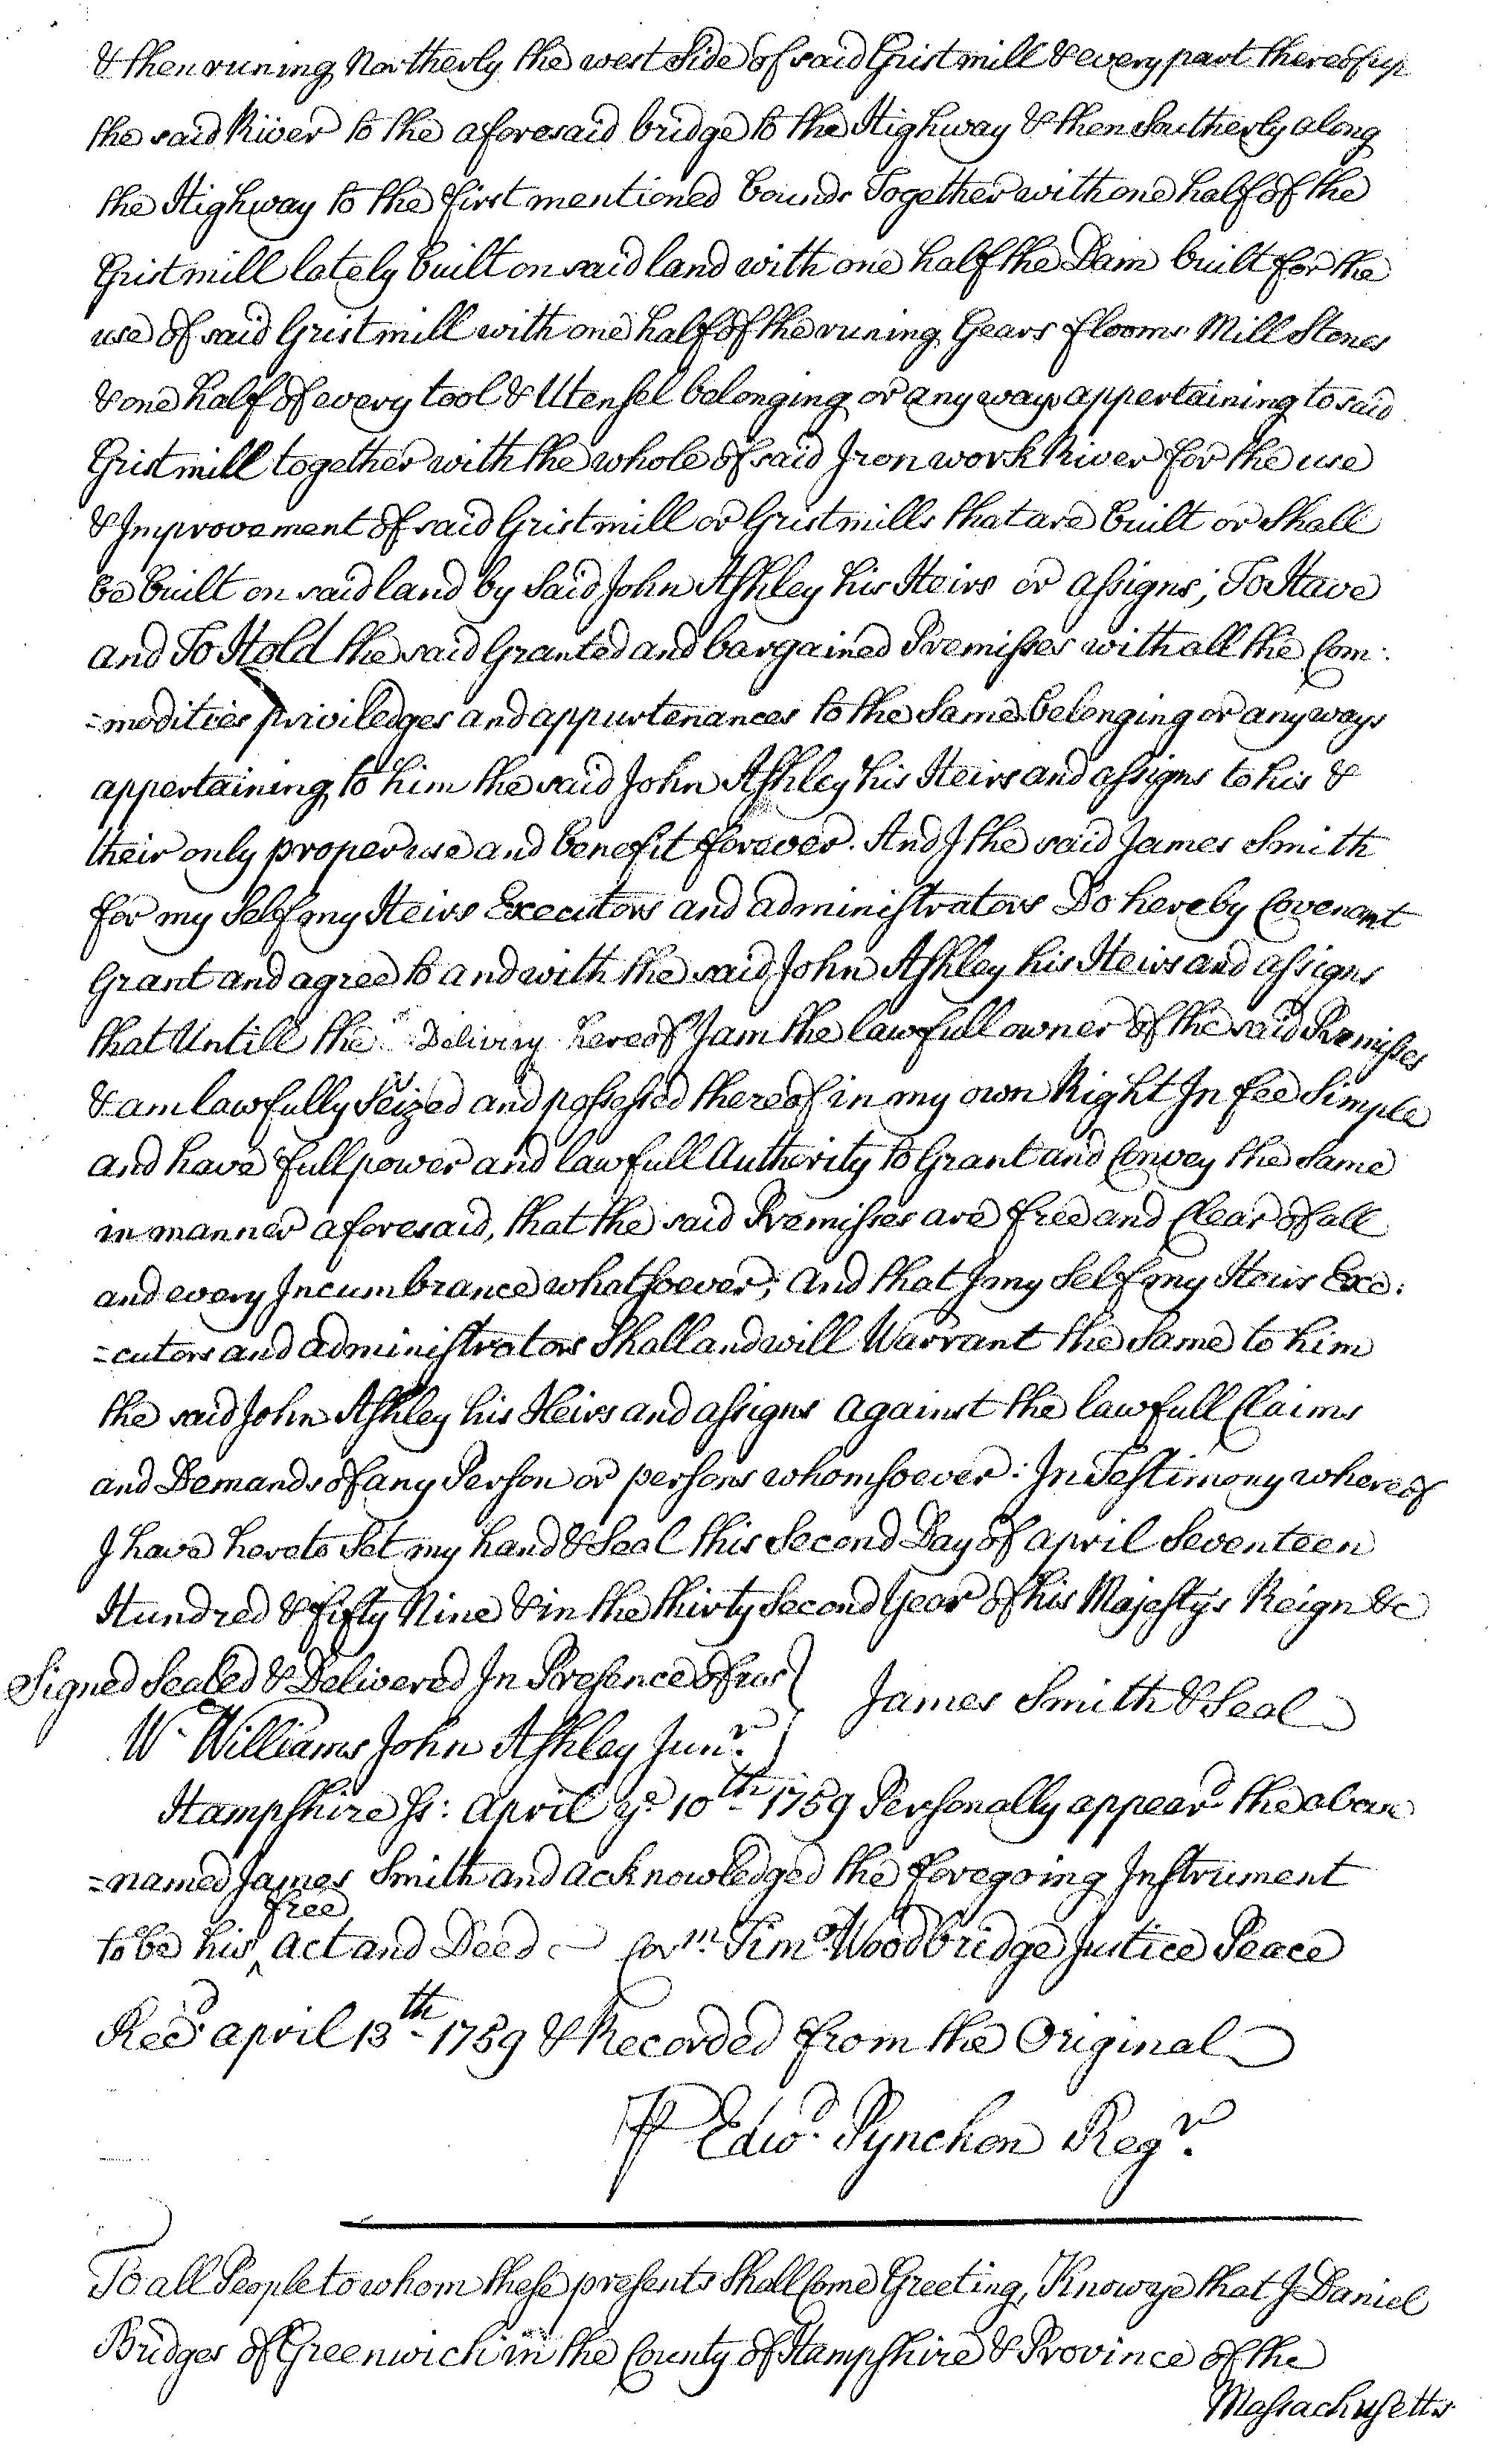 & then runing Northerly the west Side of said Gristmill & every part thereof up
the said River to the aforesaid bridge to the Highway & then Southerly along
the Highway to the first mentioned bounds Together with one half of the
Gristmill lately built on said land with one half the Dam built for the
use of said Gristmill with one half of the runing Gears flooms Mill Stones
& one half of every tool & Utensel belonging or any ways appertaining to said
Gristmill together with the whole of said Iron work River for the use
& Improvement of said Gristmill or Gristmills that are built or Shall
be built on said land by Said John Ashley his Heirs or assigns; To Have
and To Hold the said Granted and bargained Premisses with all the Com:
=modities priviledges and appurtenances to the Same belonging or any ways
appertaining to him the said John Ashley his Heirs and assigns to his &
their only proper use and benefit forever. And I the said James Smith
for my Self my Heirs Executors and administrators Do hereby Covenant
Grant and agree to and with the said John Ashley his Heirs and assigns
that Untill the Delivery hereof I am the lawfull owner of the said Premisses
& am lawfully Seized and possessed thereof in my own Right In fee Simple
and have full power and lawfull Authority to Grant and Convey the Same
in manner aforesaid, that the said Premisses are free and Clear of all
and every Incumbrance whatsoever; and that I my Self my Heirs Exe:
=cutors and administrators Shall and will Warrant the Same to him
the said John Ashley his Heirs and assigns against the lawfull Claims
and Demands of any Person or persons whomsoever: In Testimony whereof
I have hereto Set my hand & Seal this Second Day of april Seventeen
Hundred & fifty Nine & in the thirty Second Year of his Majestys Reign &c
Signed Sealed & Delivered In Presence of us } James Smith & Seal
Wm Williams John Ashley Junr.
Hampshire Ss: april ye 10th 1759 Personally appeard the above
=named James Smith and acknowledged the foregoing Instrument
to be his free act and Deed Corm. Timo Woodbridge Justice Peace
Recd april 13th 1759 & Recorded from the Original
P Edwd. Pynchon Regr.
To all People to whom these presents Shall Come Greeting, Know ye that I Daniel
Bridges of Greenwich in the County of Hampshire & Province of the
Massachusetts